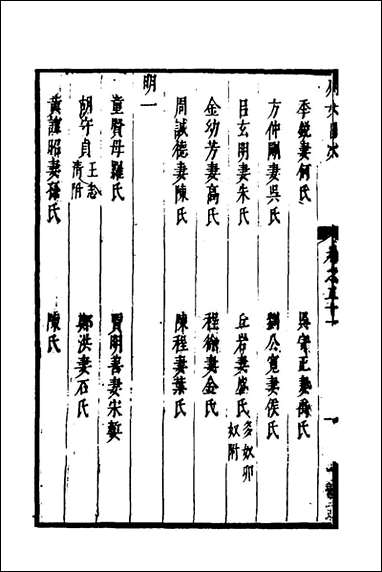 卷之五十一
季銳妻何氏　吳守正妻禹氏
方仲剛妻吳氏　劉公寬妻侯氏
呂玄明妻朱氏　丘若妻盛氏多奴卯奴附
金幼芳妻高氏　程徐妻金氏
周誠德妻陳氏　陳程妻葉氏
明一
童賢母羅氏　賈明善妻宋氏
胡守貞王志青附　鄭洪妻石氏
黃譚昭妻孫氏　陳氏